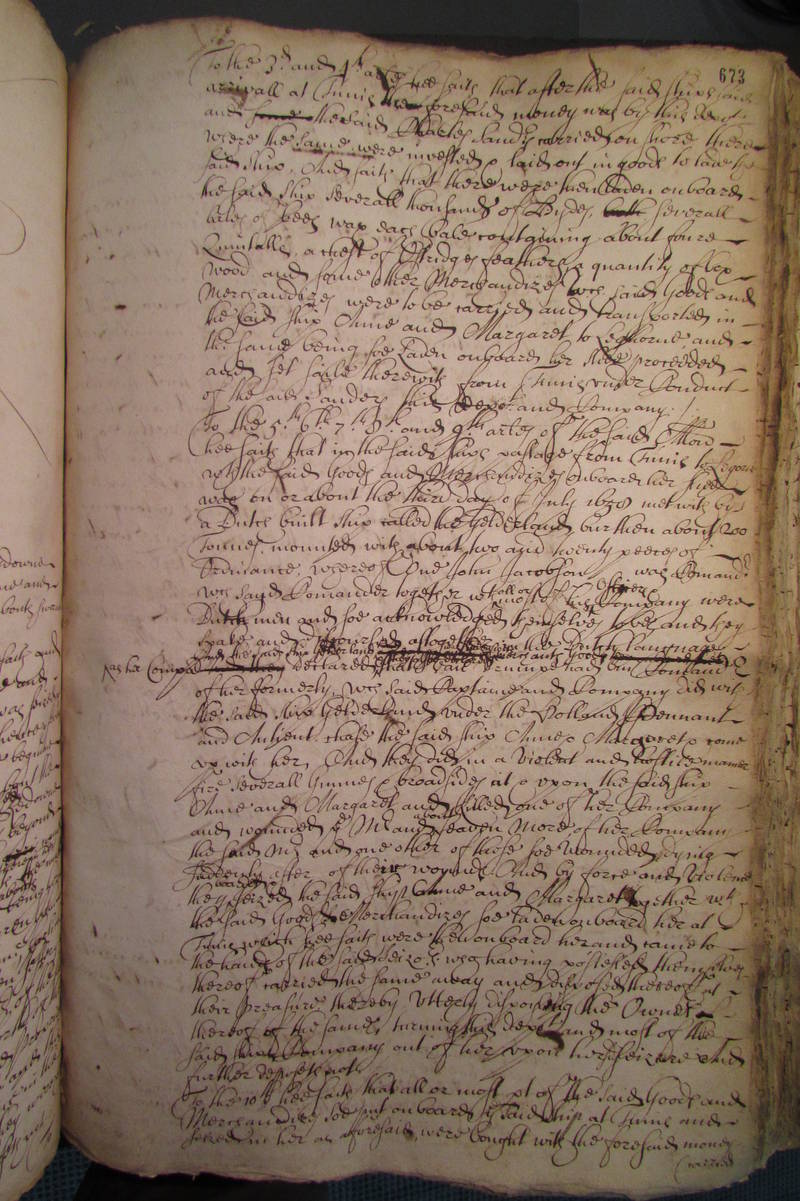 673
To the 3d. and 4th. arles hee saith that after the said ships said
arrivall at Tunis the foresaid money was by this depot
and some the said Charles Sandys carried on shore there
where the same were invested & laid out in goods to lade the
said ship, And saith that there were then laden onboard
the said ship severall thousands of Hydes, both severall
bales of bees wax each bale containing about foure
Quintalls, a chest of Estridges feathers, a quantity of box
wood and some other Merchandizes wch said Goods and
Merchandizes were to be carried and transported in
the said ship Anne and Margaret to Leghorne and
the same being soe laden onboard her shee proceeded
and set saile therewith from Tunis under Conduct
of the said Sanders this depot and Company./
To the 5th. 6th 7th. 8th. and 9th arles of the said Allon
hee saith that in the said ships passage from Tunis to Legorne
wth the said Goods and Merchandizes onboard her shee
was on or about the third day of July 1658 met with by
a Dutch built ship called the Gelderland, burthen about 200
Tonnes mounted with about two and twenty peeces of
Ordinance, whereof One John Jacobson was Comandr.
wch said Comander together with all or most of his Officers Company were
Dutch men and soe acknowledged themselves to be, and they
spake and discoursed altogether in the Dutch language
And the said ship Gelderland
declared that had bin Comand
of her formerly, wch said Captaine and Company did with
the said ship Gelderland under the Holland Pennant
and Antient chase the said ship Anne & Margaret & come
up with her, And they did in a violent and hostile manner
fire severall Gunnes & broadsides at & upon the said ship
Anne and Margaret and killed one of her Company
and wounded ye Mr. and about seaven more of her Company
the said Mr. and one other of those soe wounded dying
presently after of their wounds And by force and violence
they boarded & seized the said ship Anne and Margaret together wth
the said Goods & Merchandizes soe laden onboard her at
Tunis which hee saith were then onboard her and came to
the hands of the said seizors who having possessed themselves
thereof carried the same away and disposed thereof at
their pleasure thereby utterly dispoiling the Owners
thereof of the same, turning this depot and most of the
said Company out of her upon her seizure And
further deposeth not
To the 10th hee saith that all or most pt of the said Goods and
Merchandizes soe put onboard ye said ship at Tunis and
seized in her as aforesaid, were bought with the foresaid money
carried